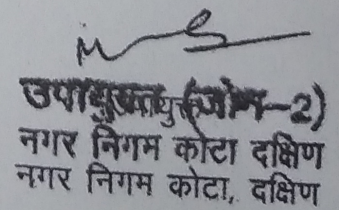 उपायुक्त (जोन-2)
नगर निगम कोटा दक्षिण
नगर निगम कोटा, दक्षिण